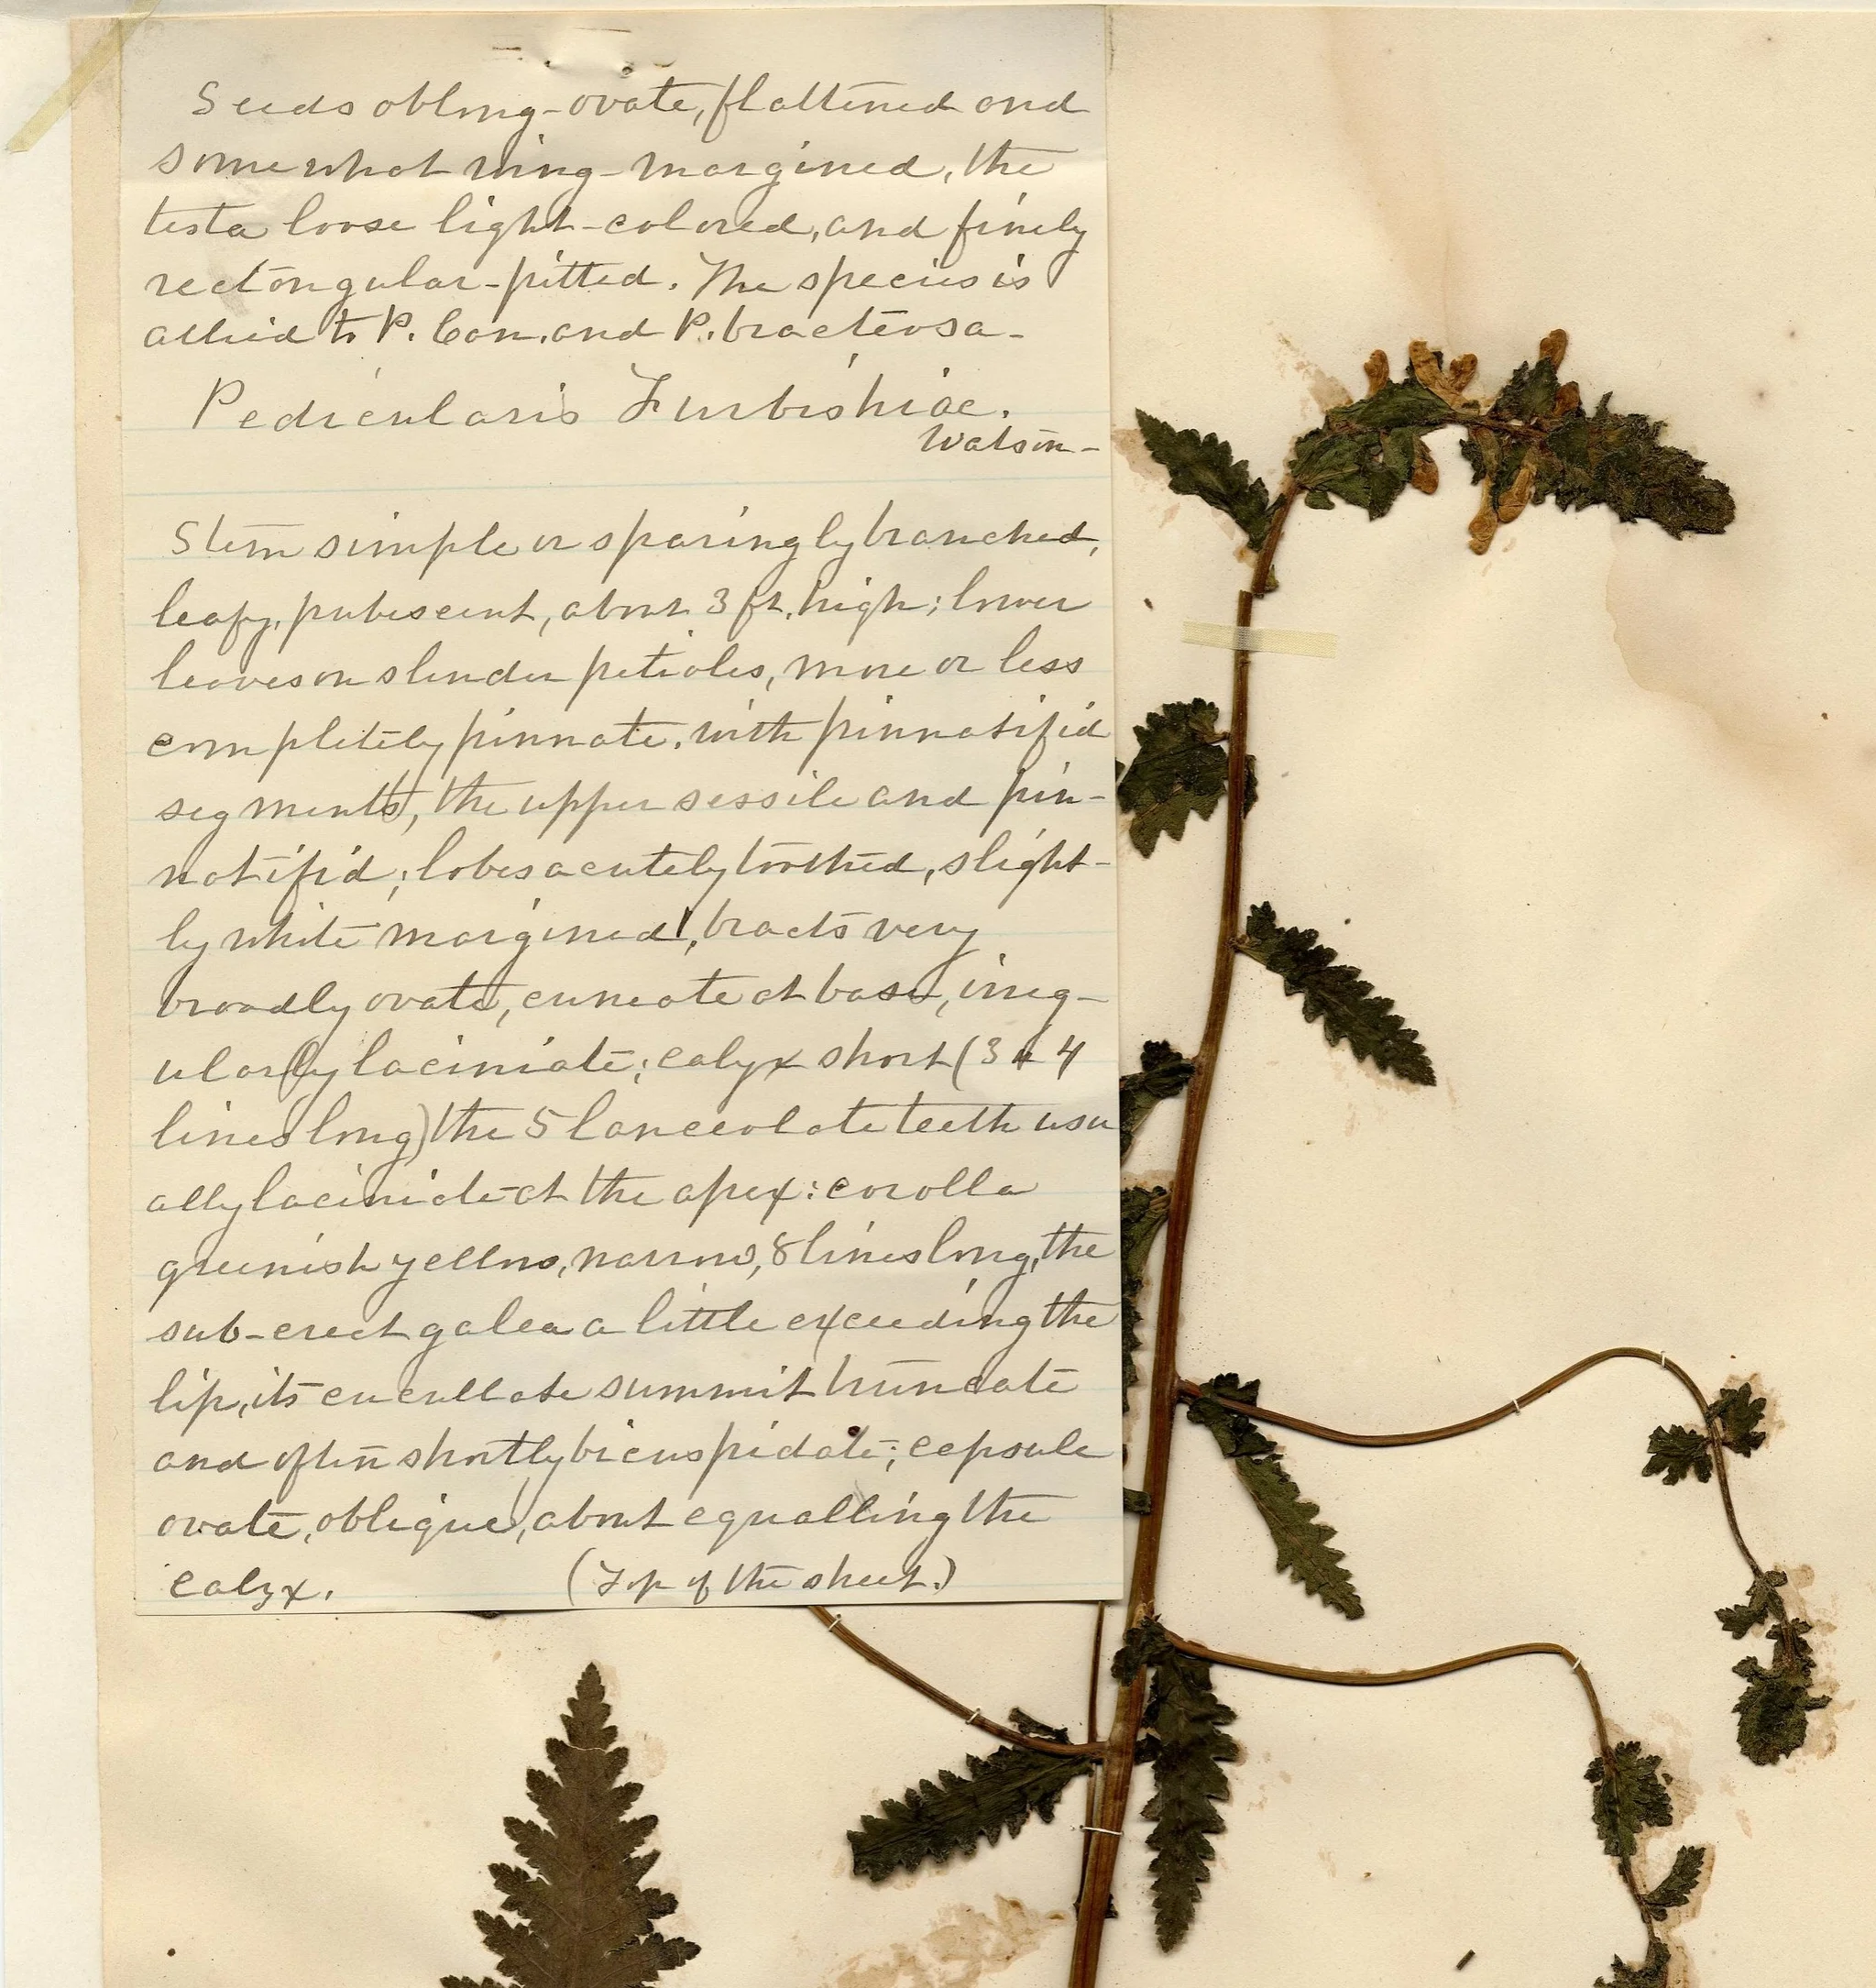 Seeds oblong-ovate, flattened and
somewhat wing-margined, the
testa loose light-colored, and finely
rectangular-pitted. The species is
allied to P. Can. and P. bracteosa-
Pedicularis Furbishiae.
Watson-
Stem simple or sparingly branched,
leafy, pubescent, about 3 ft. high; lower
leaves on slender petioles, more or less
completely pinnate, with pinnatifid
segments, the upper sessile and pin-
natifid; lobes acutely toothed, slight-
ly white margined, bracts very
broadly ovate, cuneate at base, irreg-
ularly laciniate; calyx short (3 or 4
lines long) the 5 lanceolate teeth usu
ally laciniate at the apex: corolla
greenish yellow, narrow, 8 lines long, the
sub-erect galea a little exceeding the
lip, its cucullate summit truncate
and often shortly bicuspidate; capsule
ovate, oblique, about equalling the
calyx. (Top of the sheet.)